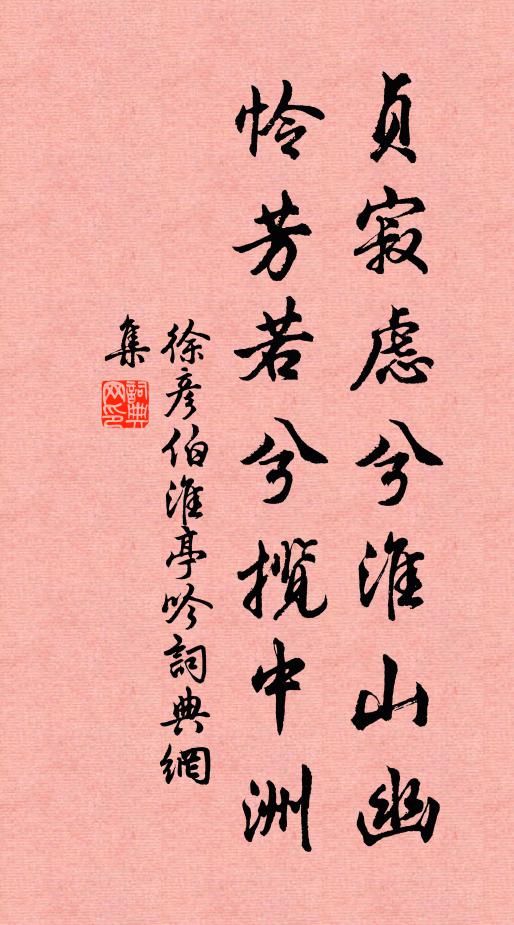 貞寂慮兮淮山幽
憐芳若兮攬中洲
徐彥伯淮亭吟詞典網
集
詞典網印